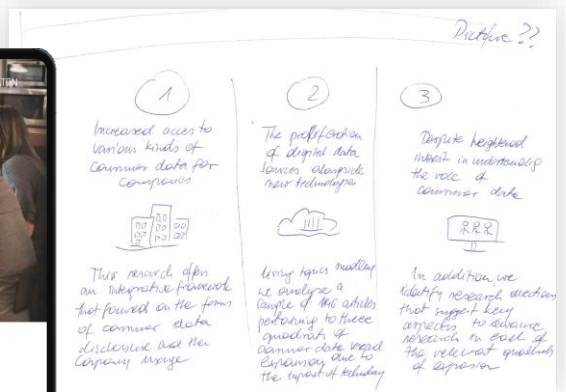 Picture ??
1
Increased acces to
various kinds of
consumer data for
companies
This research offers
an integrative framework
that focused on the forms
of consumer data
disclosure and the
Company usage
2
The proliferation
of digital data
sources alongside
new technologies
Using topics modelling
we analyze a
sample of articles
pertaining to three
quadrats of
consumer data
expansion due to
the impact of technology
3
Despite heightened
interest in understanding
the role of
consumer data
In addition, we
identify research directions
that suggest key
aspects to advance
research in each of
the relevant quadrants
of expansion